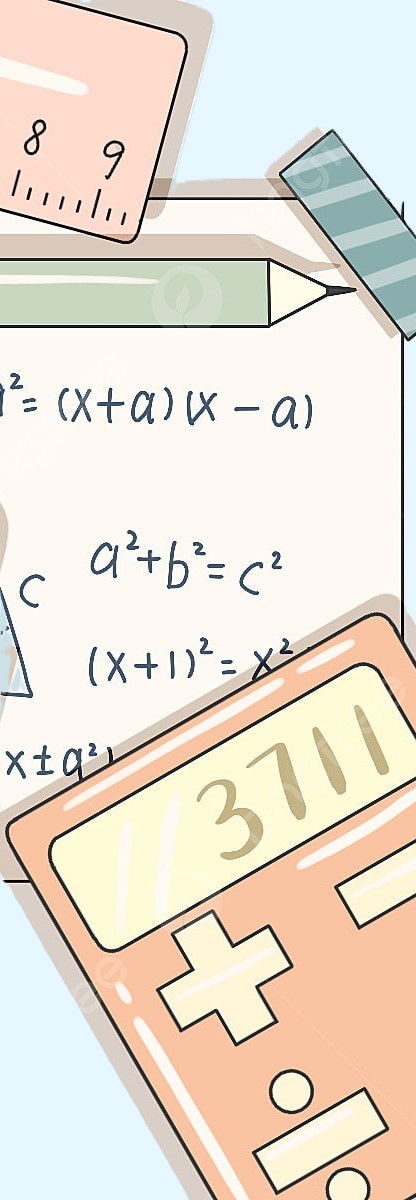 8 9
²= (x+a)(x - a)
a²+b²= c²
c
(x+1)²= x²
x±a²
3711